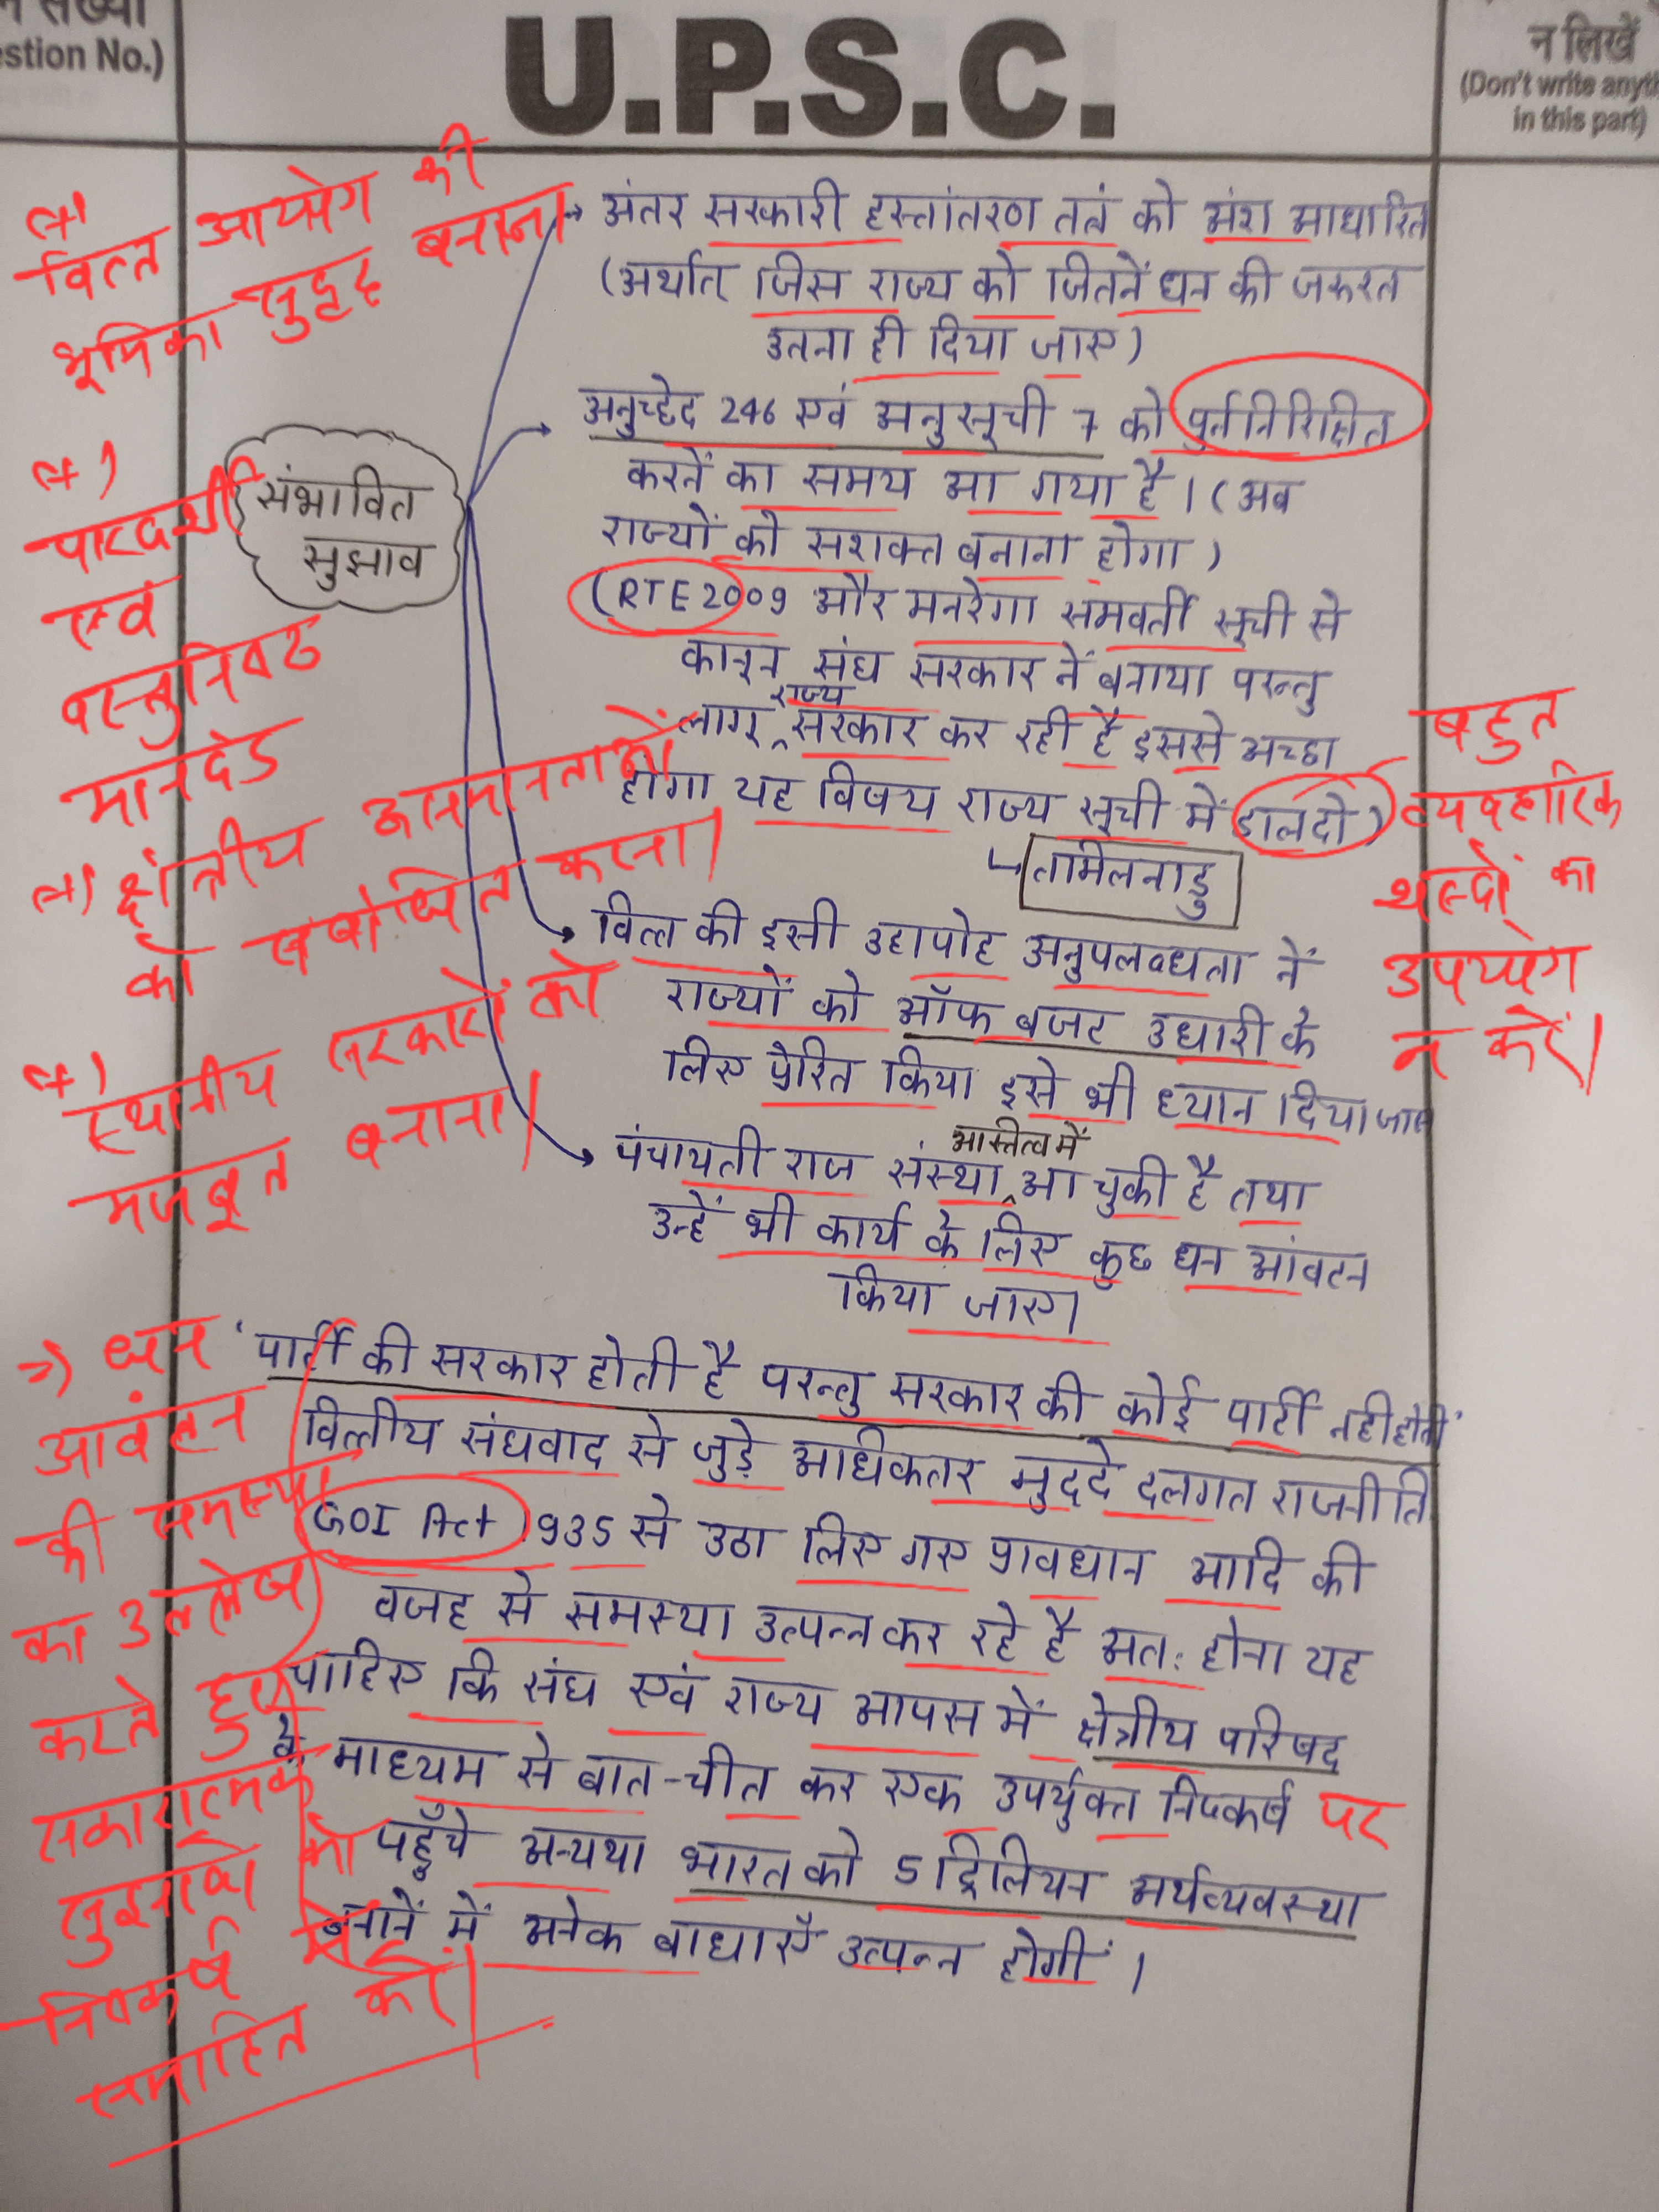 न संख्या
estion No.)
U.P.S.C.
न लिखें
(Don't write anyth
in this part)
वित्त आयोग की
भूमिका सुदृढ़ बनाना
पारदर्शी
एवं
वस्तुनिष्ठ
मानदंड
क्षेत्रीय असमानताओं
को संबोधित करना।
स्थानीय सरकारों को
मजबूत बनाना।
संभावित
सुझाव
अंतर सरकारी हस्तांतरण तंत्र को अंश आधारित
(अर्थात् जिस राज्य को जितनें धन की जरूरत
उतना ही दिया जाए)
अनुच्छेद 246 एवं अनुसूची 7 को पुर्ननिरिक्षित
करनें का समय आ गया है। (अब
राज्यों को सशक्त बनाना होगा)
(RTE 2009 और मनरेगा समवर्ती सूची से
कानून संघ सरकार नें बनाया परन्तु
लागू राज्य सरकार कर रही है इससे अच्छा
होगा यह विषय राज्य सूची में डालदो)
तामिलनाडु
बहुत
व्यवहारिक
शब्दों का
उपयोग
न करें।
वित्त की इसी उहापोह अनुपलब्धता नें
राज्यों को ऑफ बजट उधारी के
लिए प्रेरित किया इसे भी ध्यान दिया जाए
पंचायती राज संस्था आस्तित्व में आ चुकी है तथा
उन्हें भी कार्य के लिए कुछ धन आंवटन
किया जाए।
'पार्टी की सरकार होती है परन्तु सरकार की कोई पार्टी नही होती'
वित्तीय संघवाद से जुड़े आधिकतर मुददे दलगत राजनीति
GOI Act 1935 से उठा लिए गए प्रावधान आदि की
वजह से समस्या उत्पन्न कर रहे है अत: होना यह
चाहिए कि संघ एवं राज्य आपस में क्षेत्रीय परिषद
के माध्यम से बात-चीत कर एक उपर्युक्त निष्कर्ष पर
पहुँचे अन्यथा भारत को 5 ट्रिलियन अर्थव्यवस्था
बनानें में अनेक बाधाएँ उत्पन्न होगीं।
=) धन
आवंटन
की समस्या
का उल्लेख
करते हुए
सकारात्मक
सुझावों को
निष्कर्ष में
समाहित करें।